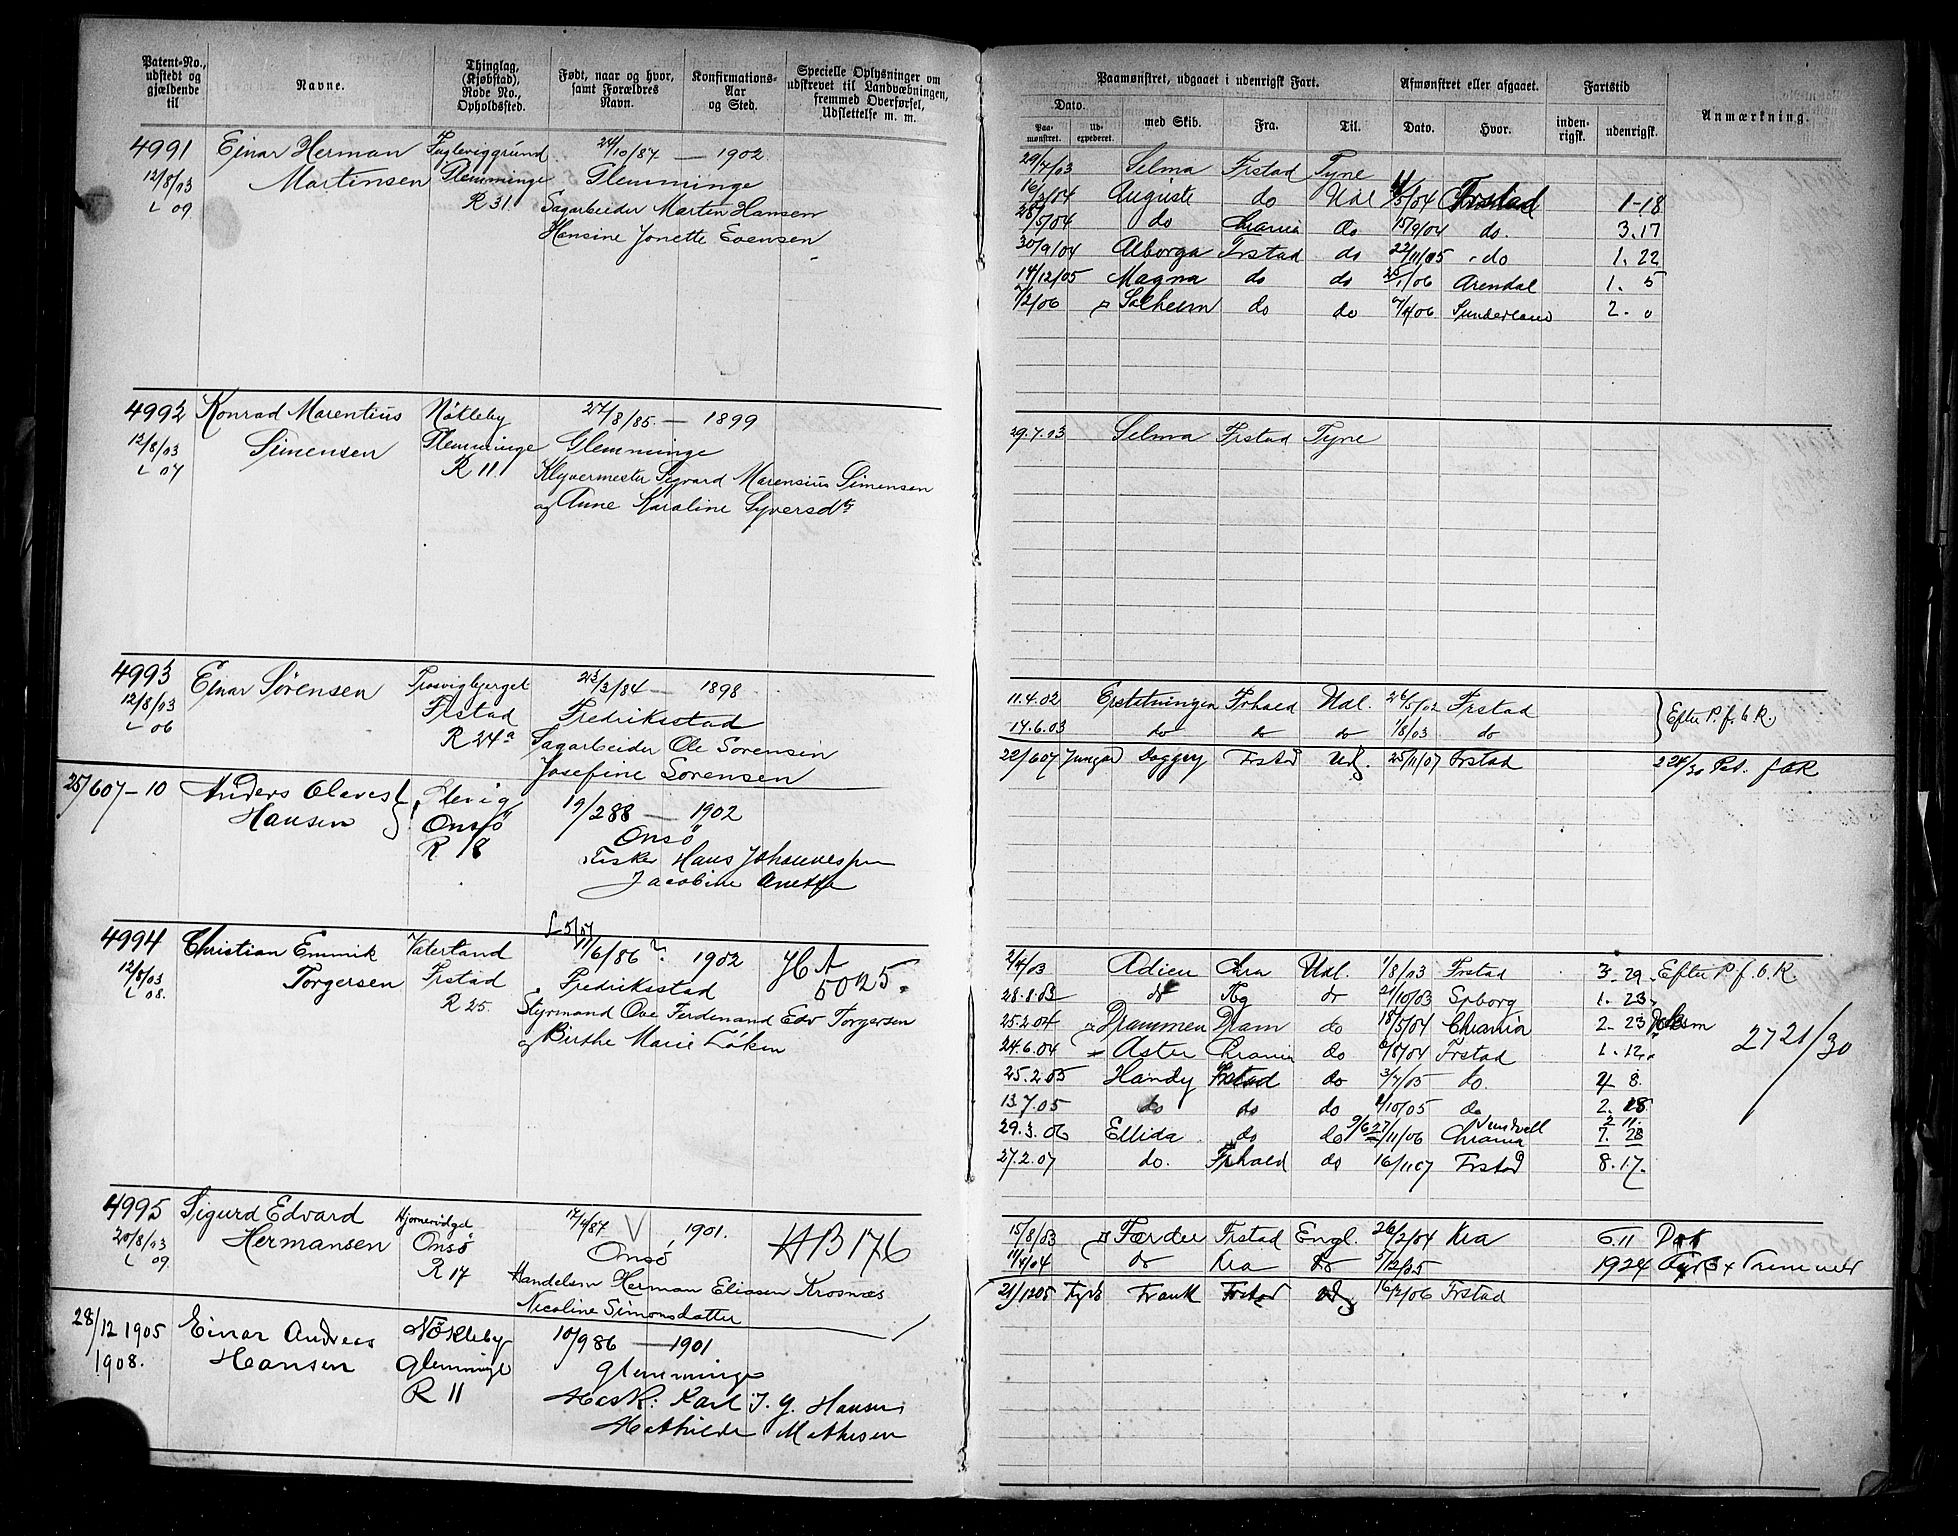 Patent-No., udstedt og gjældende til
Navne.
Thinglag, (Kjøbstad), Rode No., Opholdssted.
Født, naar og hvor, samt Forældres Navn.
Konfirmations-Aar og Sted.
Specielle Oplysninger om udskrevet til Landvæbningen, fremmed Overførsel, Udslettelse m. m.
Paamønstret, udgaaet i udenrigsk Fart.
Afmønstret eller afgaaet.
Fartstid
Anmærkning.
Dato.
Paa-mønstret.
Ud-expederet.
med Skib.
Fra.
Til.
Dato.
Hvor.
inden-rigsk.
udenrigsk.
4991 Einar Herman Fugleviggrund 24/10/87 — 1902
12/8/03 Martinsen Glemminge Glemminge
L 09 R 31. Sagarbeider Martin Hansen
Hansine Jonette Evensen
29/7/03 Selma Frstad Tyne
16/2/04 Auguste do Udl /5/04 Frstad 1-18
28/5/04 do Chrania do 15/9/04 do 3.17
30/9/04 Alborga Frstad do 22/11/05 do 1.22
14/12/05 Magna do do 25/1/06 Arendal 1. 5
7/2/06 Solheim do do 7/4/06 Sunderland 2. 0
4992 Konrad Marentius Nökleby 27/8/85 — 1899
12/8/03 Simensen Glemminge Glemminge
L 07 R 11. Klyvermester Sigvard Marensius Simensen
og Anne Karoline Syversdtr
29.7.03 Selma Frstad Tyne
4993 Einar Sörensen Trosvigbjerget 23/3/84 — 1898
12/8/03 Frstad Fredriksstad
L 06 R 24a Sagarbeider Ole Sorensen
Josefine Sorensen
11.4.02 Erstatningen Frhald Udl. 26/5/02 Frstad Efter P. f. b R.
17.6.03 do do do 1/8/03 do
25/607-10 Anders Olaves Slevig 19/288 — 1902
Hansen Onsö Onsö
R 18 Fisker Hans Johannessen
Jacobine Anette
22/607 Jungm Doggey Frstd Udl. 25/11/07 Frstad
4994 Christian Emmik Vaterland 11/6/86 1902 HA
12/8/03 Torgersen Frstad Fredriksstad 5025.
L 08. R 25. Styrmand Ove Ferdinand Edv Torgersen
og Birthe Marie Löken
2/4/03 Adieu Chra Udl. 1/8/03 Frstad 3.29 Efter P. f. b. R
28.8.03 do do 21/10/03 Spborg 1. 23
25.2.04 Drammen Dram do 18/5/04 Chrania 2- 23
24.6.04 Aster Chrania do /8/04 Frstad 1.12 2721/30
25.2.05 Handy Frstad do 3/7/05 do. 4 8.
13.7.05 do do do /10/05 do 2. 28
29.3.06 Ellida do do 27/11/06 Chrania 7. 28
27.2.07 do. Frhald do 16/1107 Frstad 8.17.
4995 Sigurd Edvard 17/4/87 1901. AB 176
20/8/03 Hermansen Onsö Onsö
L 09 R 17 Handelsm Herman Eliasen Krosnæs
Nicoline Simonsdatter
15/8/03 Færder Frstad Engl. 26/2/04 Kra 6.11
11/4/04 do Kra do 5/12/05 1924
28/12 1905 Einar Andreas Nökleby 10/986 — 1901
1908. Hansen Glemminge Glemminge
R 11 Mask: Karl J. G. Hansen
Mathilde Mathisen
21/1205 Fyrb Frank Frstad Udl 16/2/06 Frstad